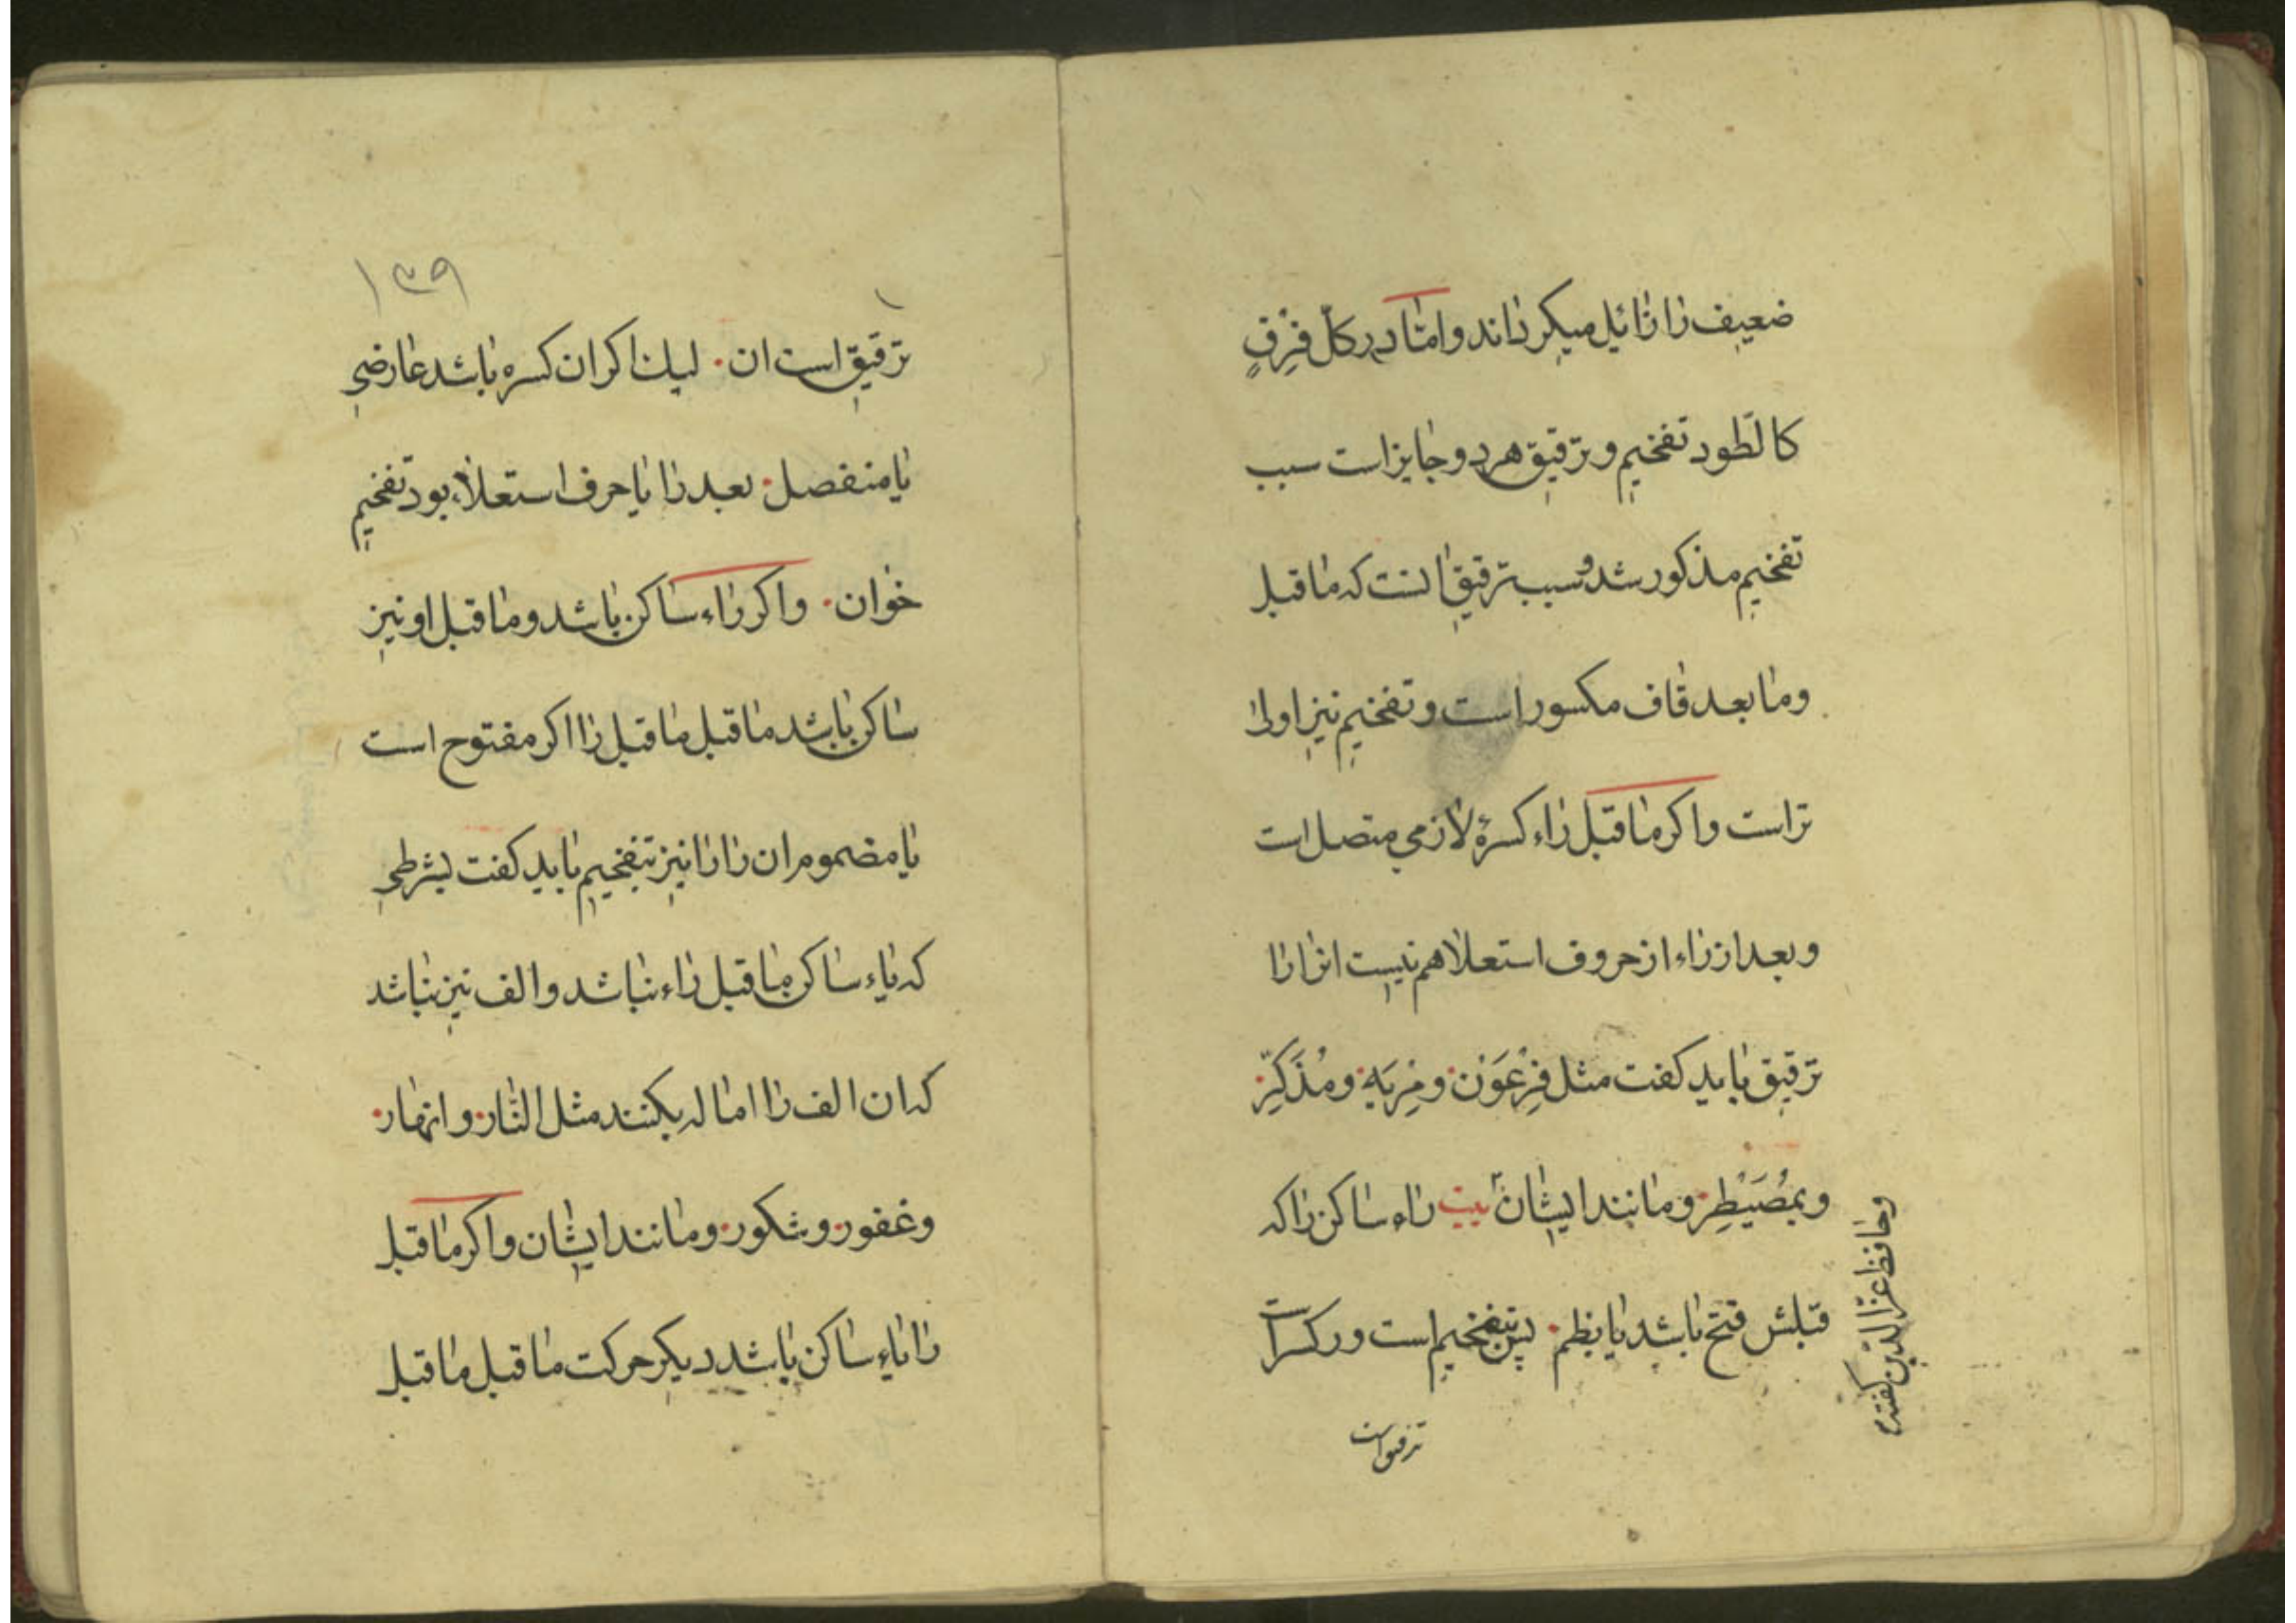 ضعیف را زائیل میکرداند و امّا در كلّ فِرْقٍ
كالطّود تفخیم و ترقیق هر دو جایز است سبب
تفخیم مذکور شد و سبب ترقیق انست که ماقبل
و مابعد قاف مکسور است و تفخیم نیز اولیٰ
تر است و اکر ماقبل راء کسرۀ لازمی متصل است
و بعد از راء از حروف استعلا هم نیست ان را را
ترقیق باید کفت مثل فِرْعَوْنَ و مِرْيَةٍ و مُذَكِّرْ
و بمُصَيْطِرْ و مانند ایشان بیت راء ساکن را که
قبلش فتح باشد یا بضم پس تفخیم است ور کسر است
ترقیق است
و حافظ عزّ الدّین کفته
۱۳۹
ترقیق است ان لیك اکر ان کسره باشد عارضی
یا منفصل بعد را یا حرف استعلاء بود تفخیم
خوان و اکر راء ساکن باشد و ماقبل او نیز
ساکن باشد ماقبل ماقبل را اکر مفتوح است
یا مضموم ان را را نیز تفخیم باید کفت بشرطی
که یاء ساکن ماقبل راء نباشد و الف نیز نباشد
که ان الف را اماله بکنند مثل النّار و انهار
و غفور و شکور و مانند ایشان و اکر ماقبل
را یاء ساکن باشد دیکر حرکت ماقبل ماقبل